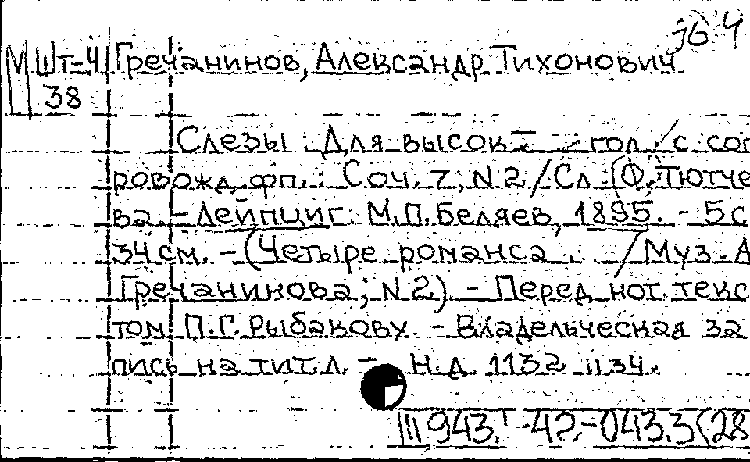 М Шт-4 Гречанинов, Александр Тихонович
38
Слезы. Для высок. гол. с соп
ровожд. фп.: Соч. 7, N2 / Сл. Ф. Тютче
ва. - Лейпциг: М.П. Беляев, 1895. - 5 с
34 см. - (Четыре романса . / Муз. А
Гречанинова; N2). - Перед нот. текс
том: П.Г. Рыбакову. - Владельческая за
пись на тит. л. - Н.д. 1132 1134.
III 943. -42.-043.3(28